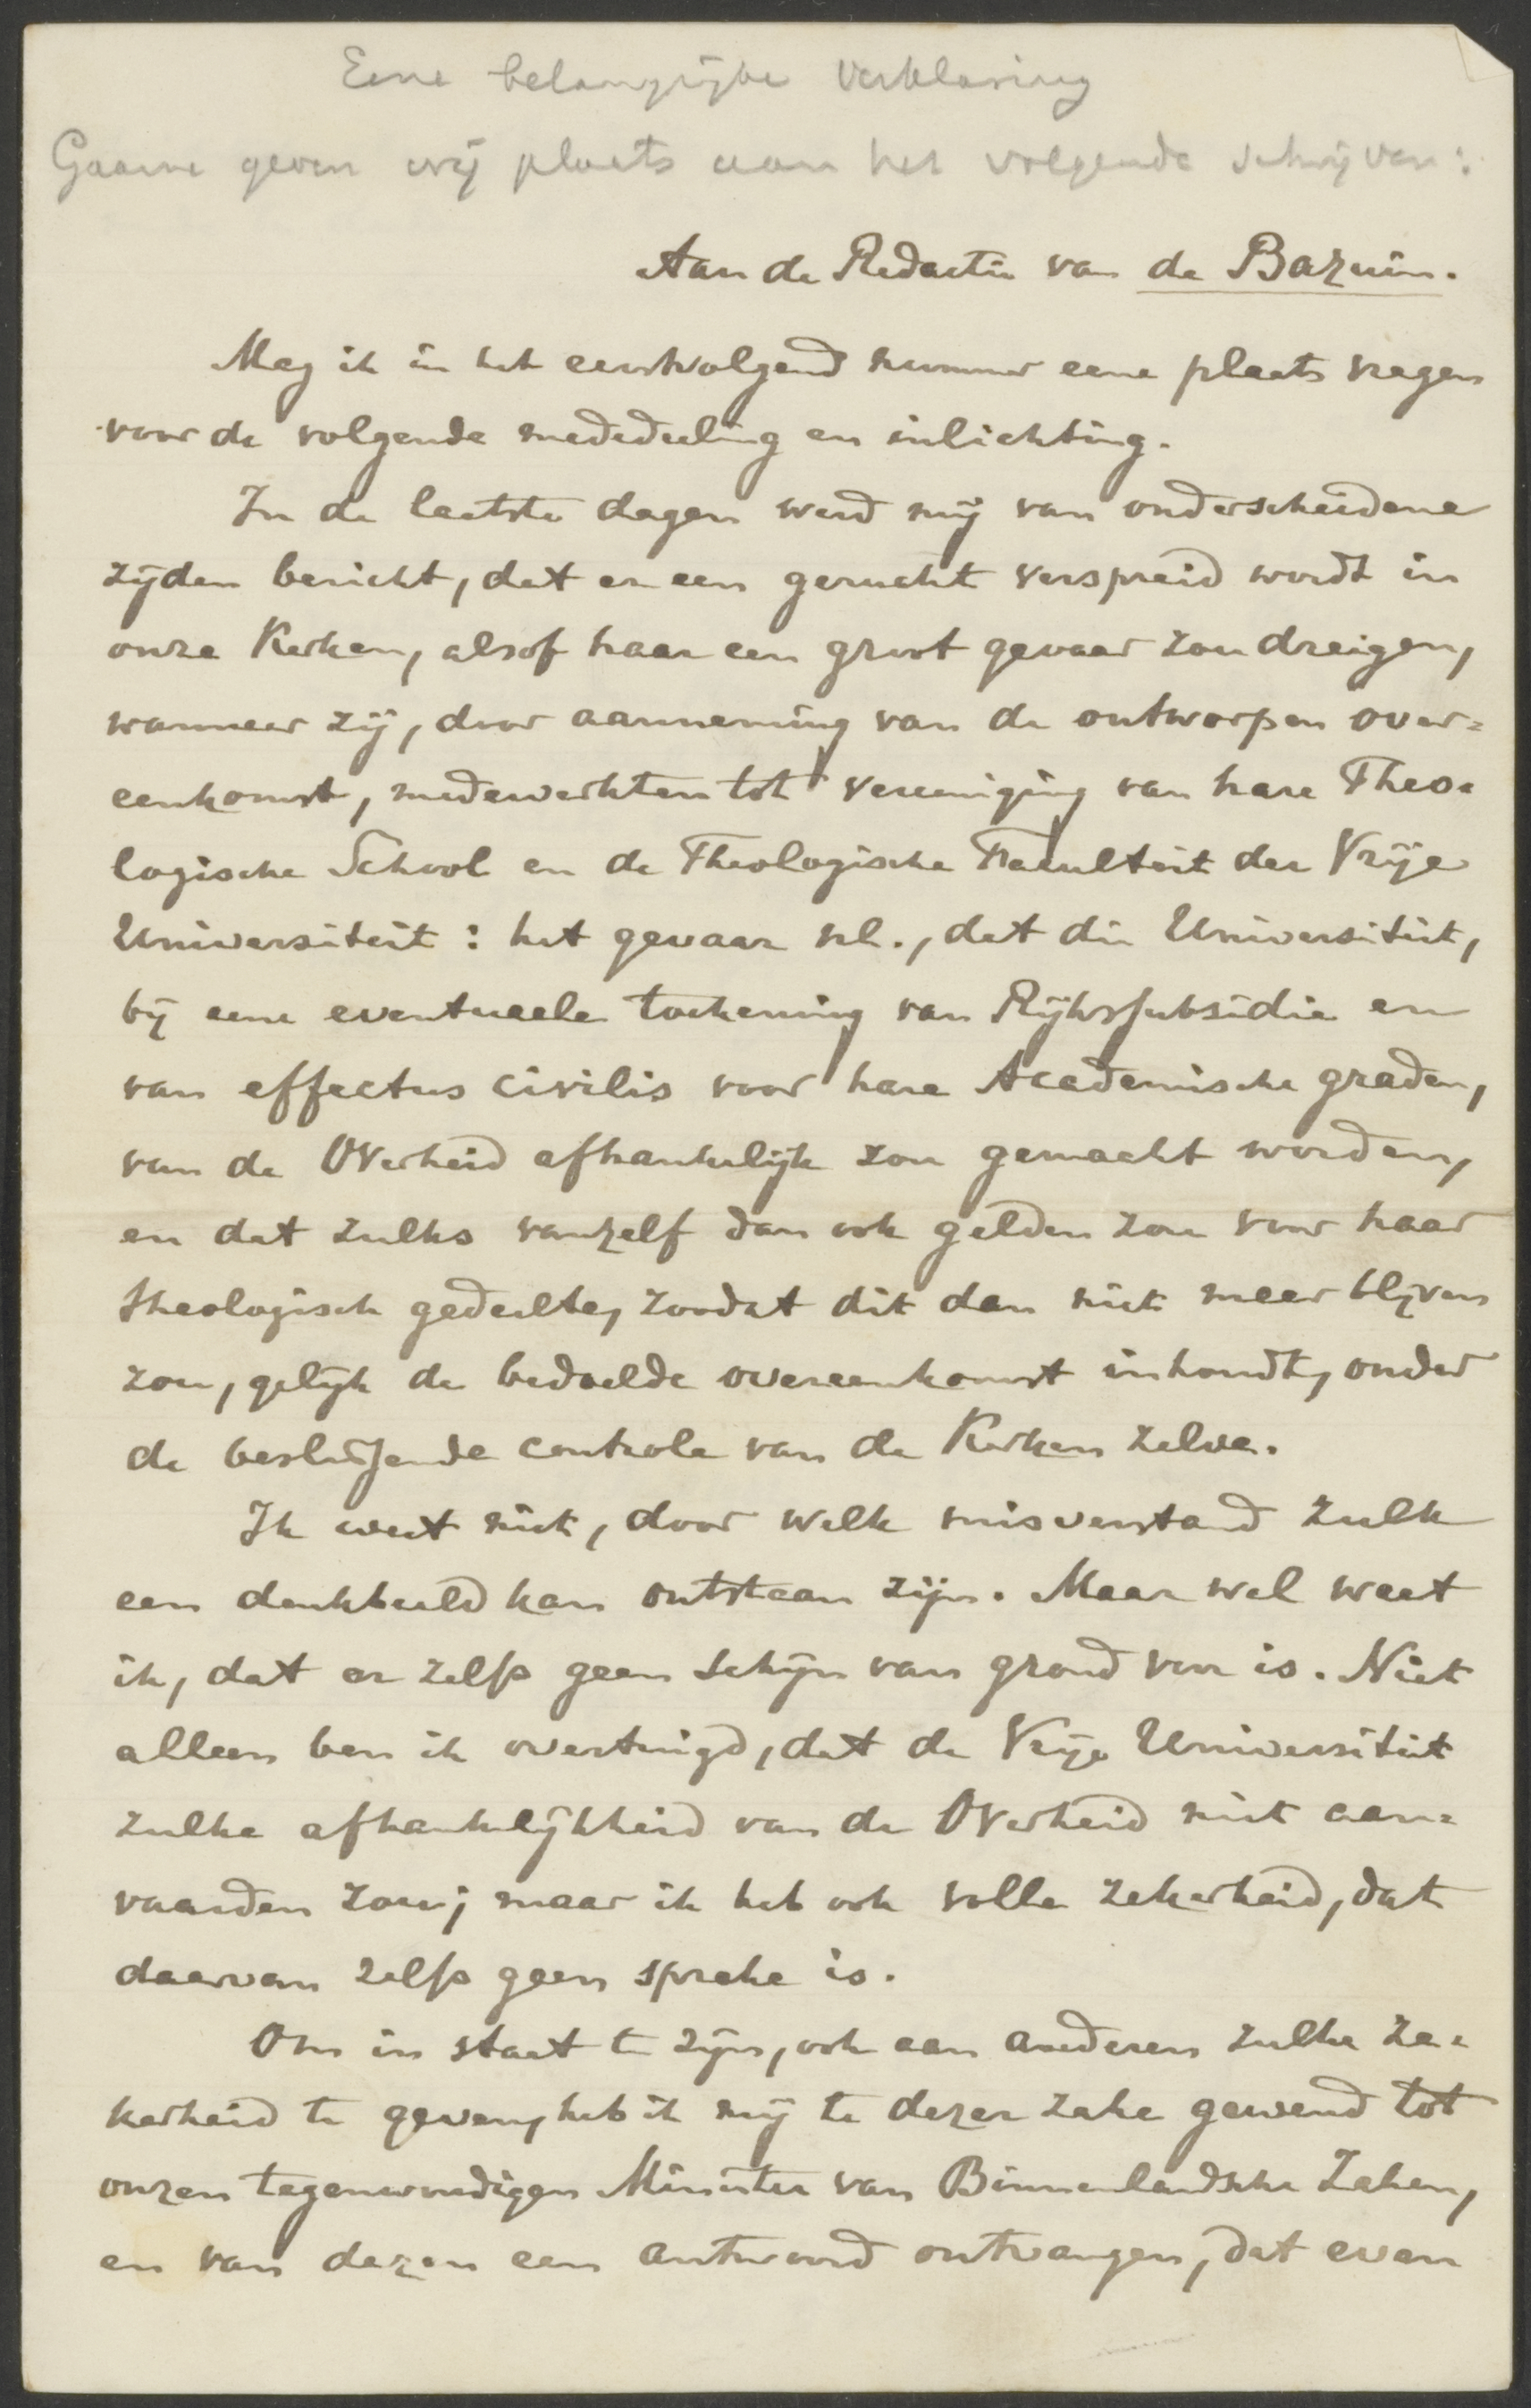 Eene belangrijke verklaring
Gaarne geven wij plaats aan het volgende schrijven:
Aan de Redactie van de Bazuin.
Mag ik in het eerstvolgend nummer eene plaats vragen
voor de volgende mededeeling en inlichting.
In de laatste dagen werd mij van onderscheidene
zijden bericht, dat er een gerucht verspreid wordt in
onze Kerken, alsof haar een groot gevaar zou dreigen,
wanneer zij, door aanneming van de ontworpen over=
eenkomst, medewerkten tot vereeniging van hare Theo=
logische School en de Theologische Faculteit der Vrije
Universiteit: het gevaar nl., dat die Universiteit,
bij eene eventueele toekenning van Rijkssubsidie en
van effectus civilis voor hare Academische graden,
van de Overheid afhankelijk zou gemaakt worden,
en dat zulks vanzelf dan ook gelden zou voor haar
theologisch gedeelte, zoodat dit dan niet meer blijven
zou, gelijk de bedoelde overeenkomst inhoudt, onder
de beslissende controle van de Kerken zelve.
Ik weet niet, door welk misverstand zulk
een denkbeeld kan ontstaan zijn. Maar wel weet
ik, dat er zelfs geen schijn van grond voor is. Niet
alleen ben ik overtuigd, dat de Vrije Universiteit
zulke afhankelijkheid van de Overheid niet aan=
vaarden zou; maar ik heb ook volle zekerheid, dat
daarvan zelfs geen sprake is.
Om in staat te zijn, ook aan anderen zulke ze=
kerheid te geven, heb ik mij te dezer zake gewend tot
onzen tegenwoordigen Minister van Binnenlandsche Zaken,
en van dezen een antwoord ontvangen, dat even